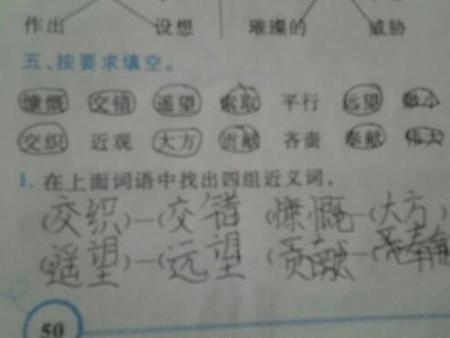 作出 设想 璀璨的 威胁
五、按要求填空。
慷慨 交错 遥望 索取 平行 远望
交织 近观 大方 贡献 吝啬 奉献 伟大
1. 在上面词语中找出四组近义词。
(交织)—(交错) (慷慨)—(大方)
(遥望)—(远望) (贡献)—(奉献
50